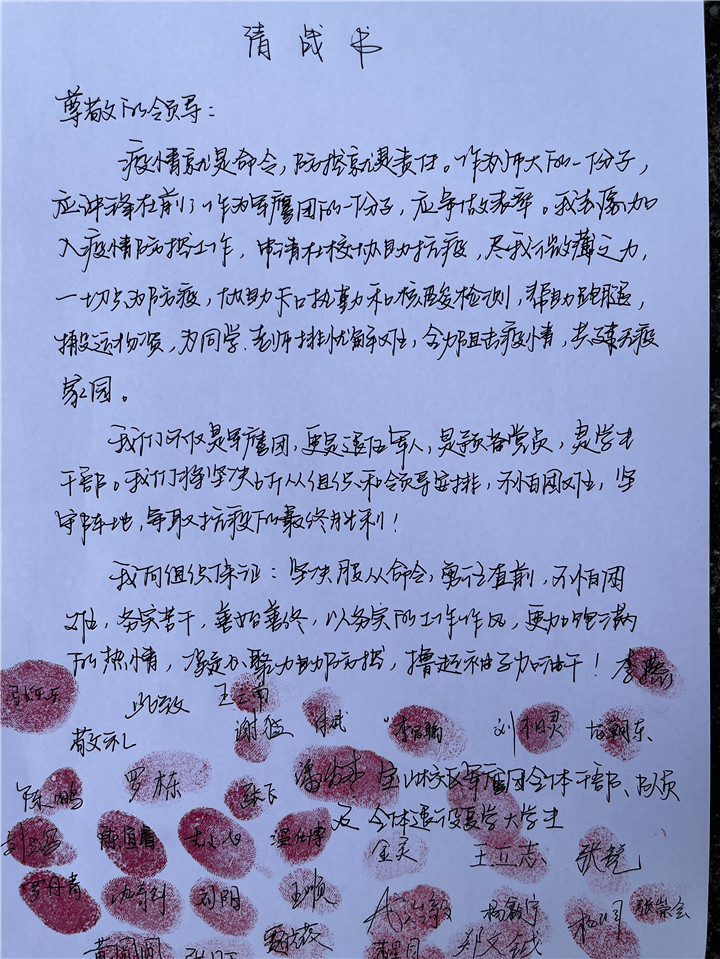 请战书
尊敬的领导：
疫情就是命令，防控就是责任。作为师大的一份子，
应冲锋在前；作为军鹰团的一份子，应争做表率。我志愿加
入疫情防控工作，申请在校协助抗疫，尽我微薄之力，
一切为防疫，协助卡口执勤和核酸检测，帮助跑腿，
搬运物资，为同学、老师排忧解难，合力阻击疫情，共建无疫
家园。
我们不仅是军鹰团，更是退伍军人，是预备党员，是学生
干部。我们将坚决听从组织和领导安排，不怕困难，坚
守阵地，争取抗疫的最终胜利！
我向组织保证：坚决服从命令，勇往直前，不怕困
难，务实苦干，善始善终，以务实的工作作风，更加饱满
的热情，凝心聚力助防控，撸起袖子加油干！李燕
此致
敬礼
谢猛 刘相灵
陈鹏 罗栋 张飞 校区军鹰团全体干部、队员
及全体退役复学大学生
金灵 王立志
罗丹青 刘阳 王顺 杨鑫宇 张崇会